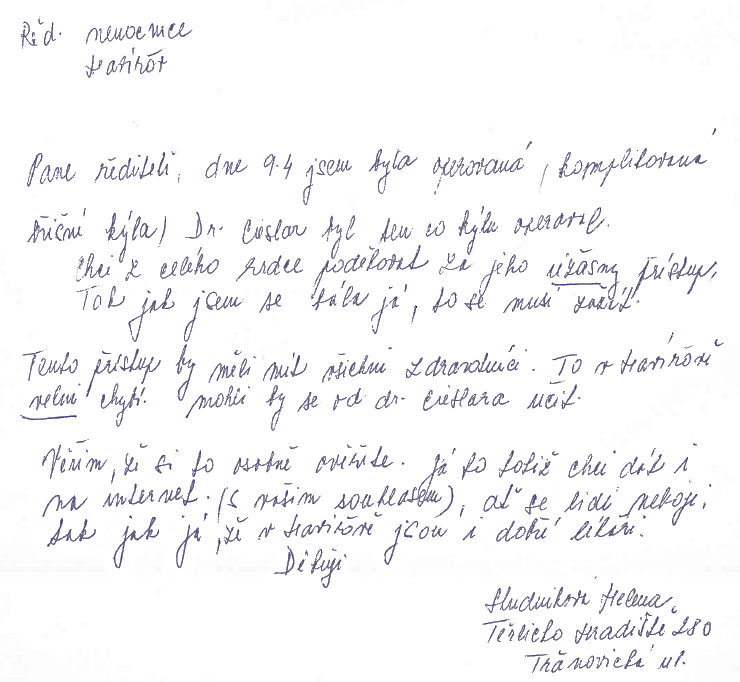 Řed. nemocnice
Havířov
Pane řediteli, dne 9.4 jsem byla operovaná, komplikovaná
břišní kýla) Dr. Cieslar byl ten co kýlu operoval.
Chci z celého srdce poděkovat za jeho úžasný přístup,
Tak jak jsem se bála já, to se musí zažít.
Tento přístup by měli mít všichni zdravotníci. To v Havířově
velmi chybí. mohli by se od dr. Cieslara učit.
Věřím, že si to osobně ověříte. Já to totiž chci dát i
na internet. (s vašim souhlasem), ať se lidi nebojí,
tak jak já, že v Havířově jsou i dobří lékaři.
Děkuji
Studniková Helena,
Těrlicko Hradiště 280
Třanovická ul.